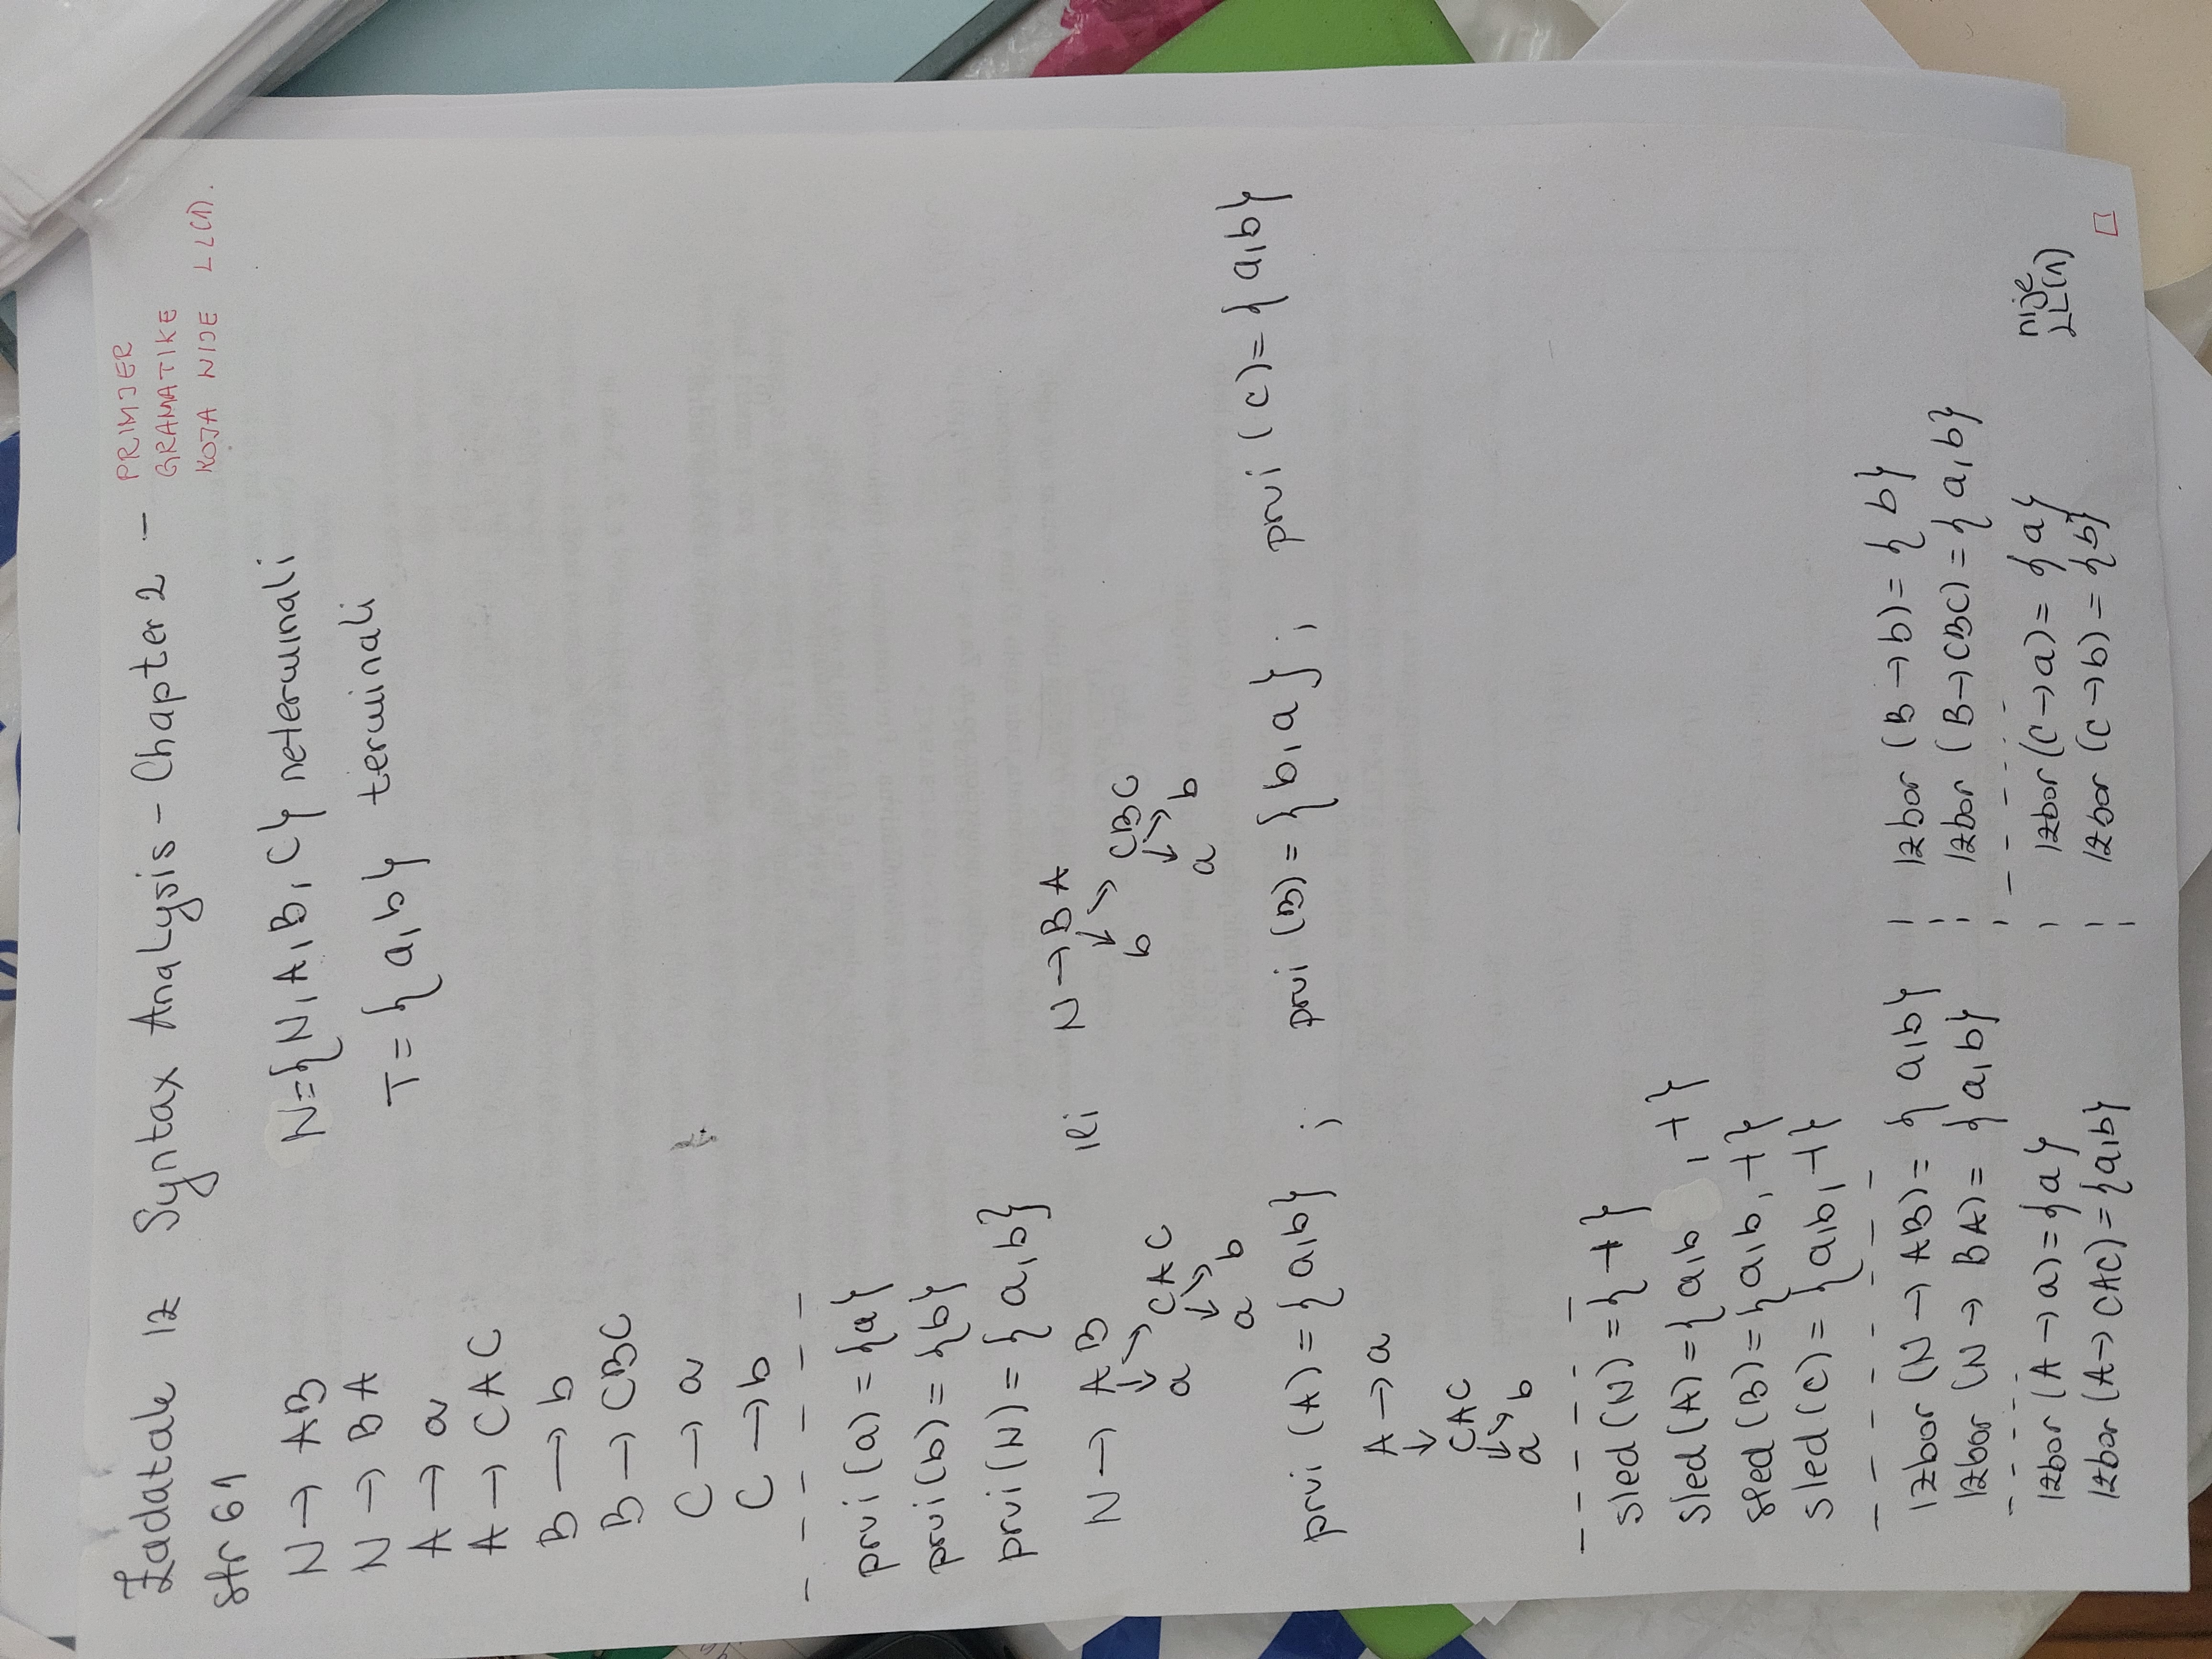 Zadatak iz Syntax Analysis - Chapter 2 -
PRIMJER
GRAMATIKE
KOJA NIJE LL(1).
str 61
N → AB
N → BA
A → a
A → CAC
B → b
B → CBC
C → a
C → b
N={N, A, B, C} neterminali
T = {a, b} terminali
prvi(a) = {a}
prvi(b) = {b}
prvi(N) = {a, b}
N → AB ili N → BA
↓ ↘ ↓ ↘
a CAC b CBC
↓ ↘ ↓ ↘
a b a b
prvi (A) = {a, b} ; prvi (B) = {b, a} ; prvi (C) = {a, b}
A → a
↓
CAC
↓ ↘
a b
sled (N) = {⊣}
sled (A) = {a, b , ⊣}
sled (B) = {a, b, ⊣}
sled (C) = {a, b, ⊣}
Izbor (N → AB) = {a, b}
Izbor (N → BA) = {a, b}
Izbor (A → a) = {a}
Izbor (A → CAC) = {a, b}
Izbor (B → b) = {b}
Izbor (B → CBC) = {a, b}
Izbor (C → a) = {a}
Izbor (C → b) = {b}
nije
LL(1)